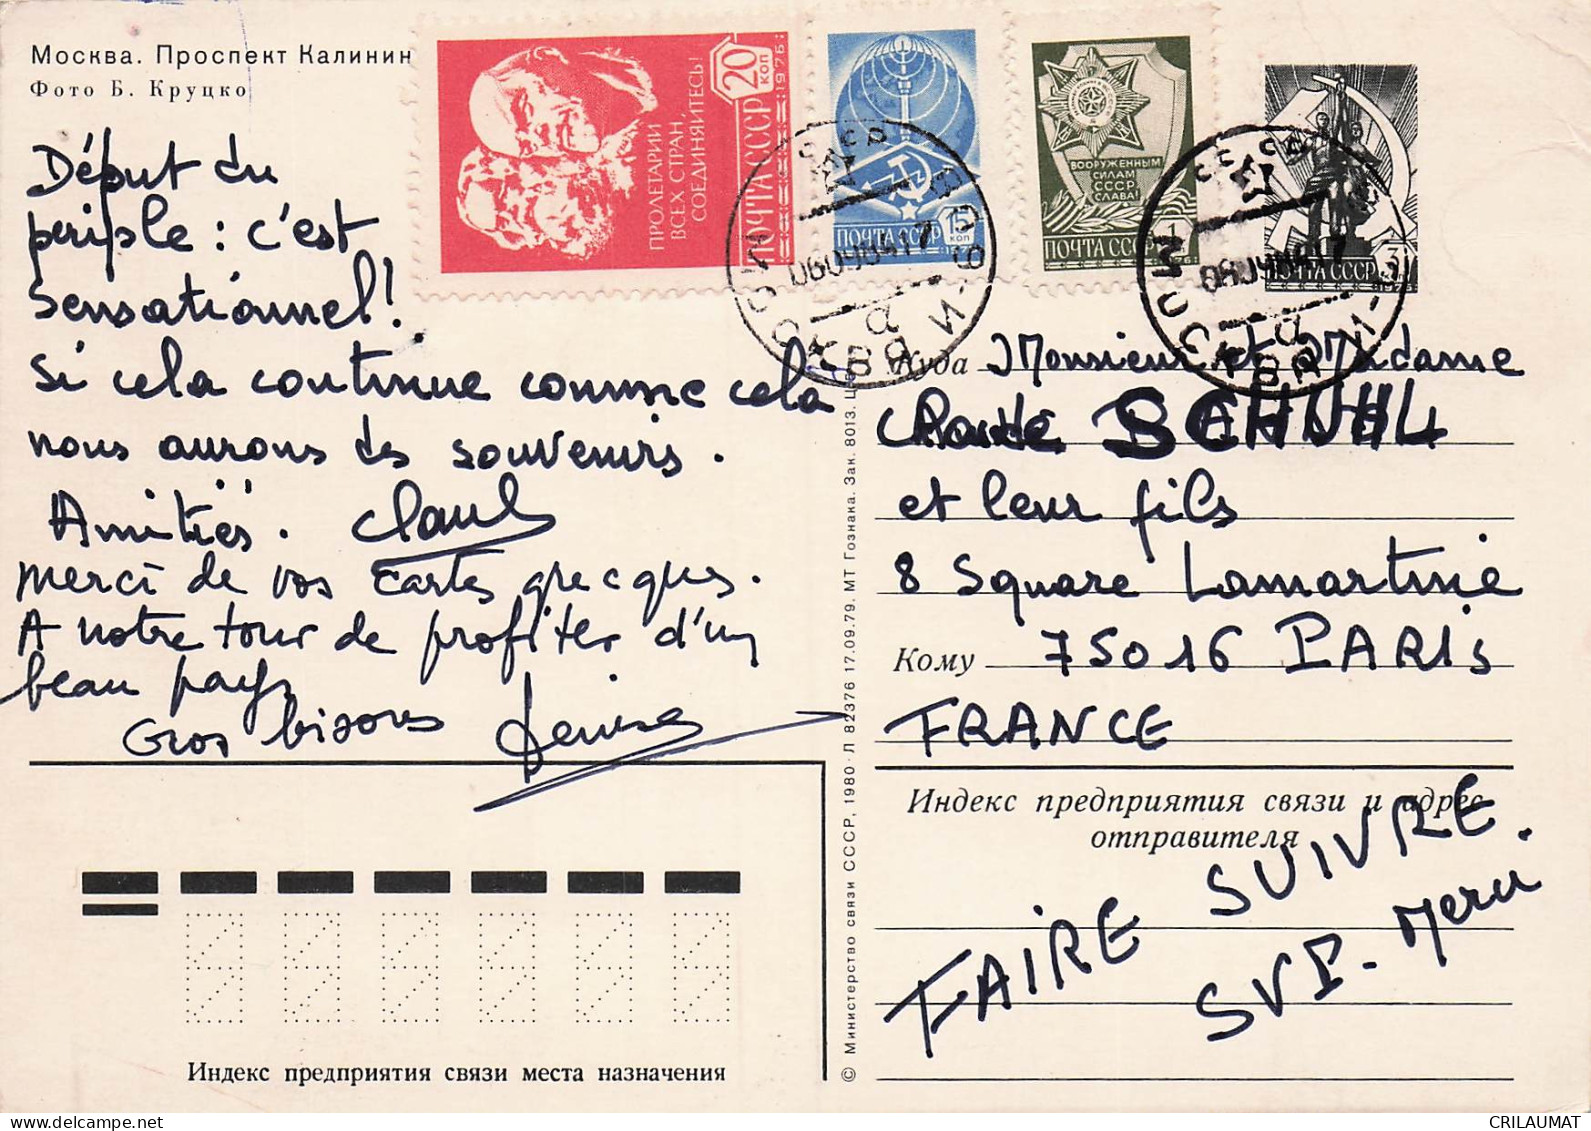 Москва. Проспект Калинин
Фото Б. Круцко
Début du
periple : c'est
sensationnel!
Si cela continue comme cela
nous aurons des souvenirs.
Amitiés.
merci de vos cartes grecques.
A notre tour de profiter d'un
beau pays
Gros bisous Denise
ПРОЛЕТАРИИ
ВСЕХ СТРАН,
СОЕДИНЯЙТЕСЬ!
ПОЧТА СССР
20
КОП
1976
ПОЧТА СССР
15
КОП
ВООРУЖЕННЫМ
СИЛАМ
СССР
СЛАВА!
ПОЧТА СССР
ПОЧТА СССР
СССР
МОСКВА
СССР
МОСКВА
Куда Monsieur et Madame
Claude SCHUHL
et leur fils
8 Square Lamartine
Кому 75016 PARIS
FRANCE
Индекс предприятия связи и адрес
отправителя
FAIRE SUIVRE.
SVP. Merci
© Министерство связи СССР, 1980. Л 82376 17.09.79. МТ Гознака. Зак. 8013. Ц
Индекс предприятия связи места назначения
CRILAUMAT